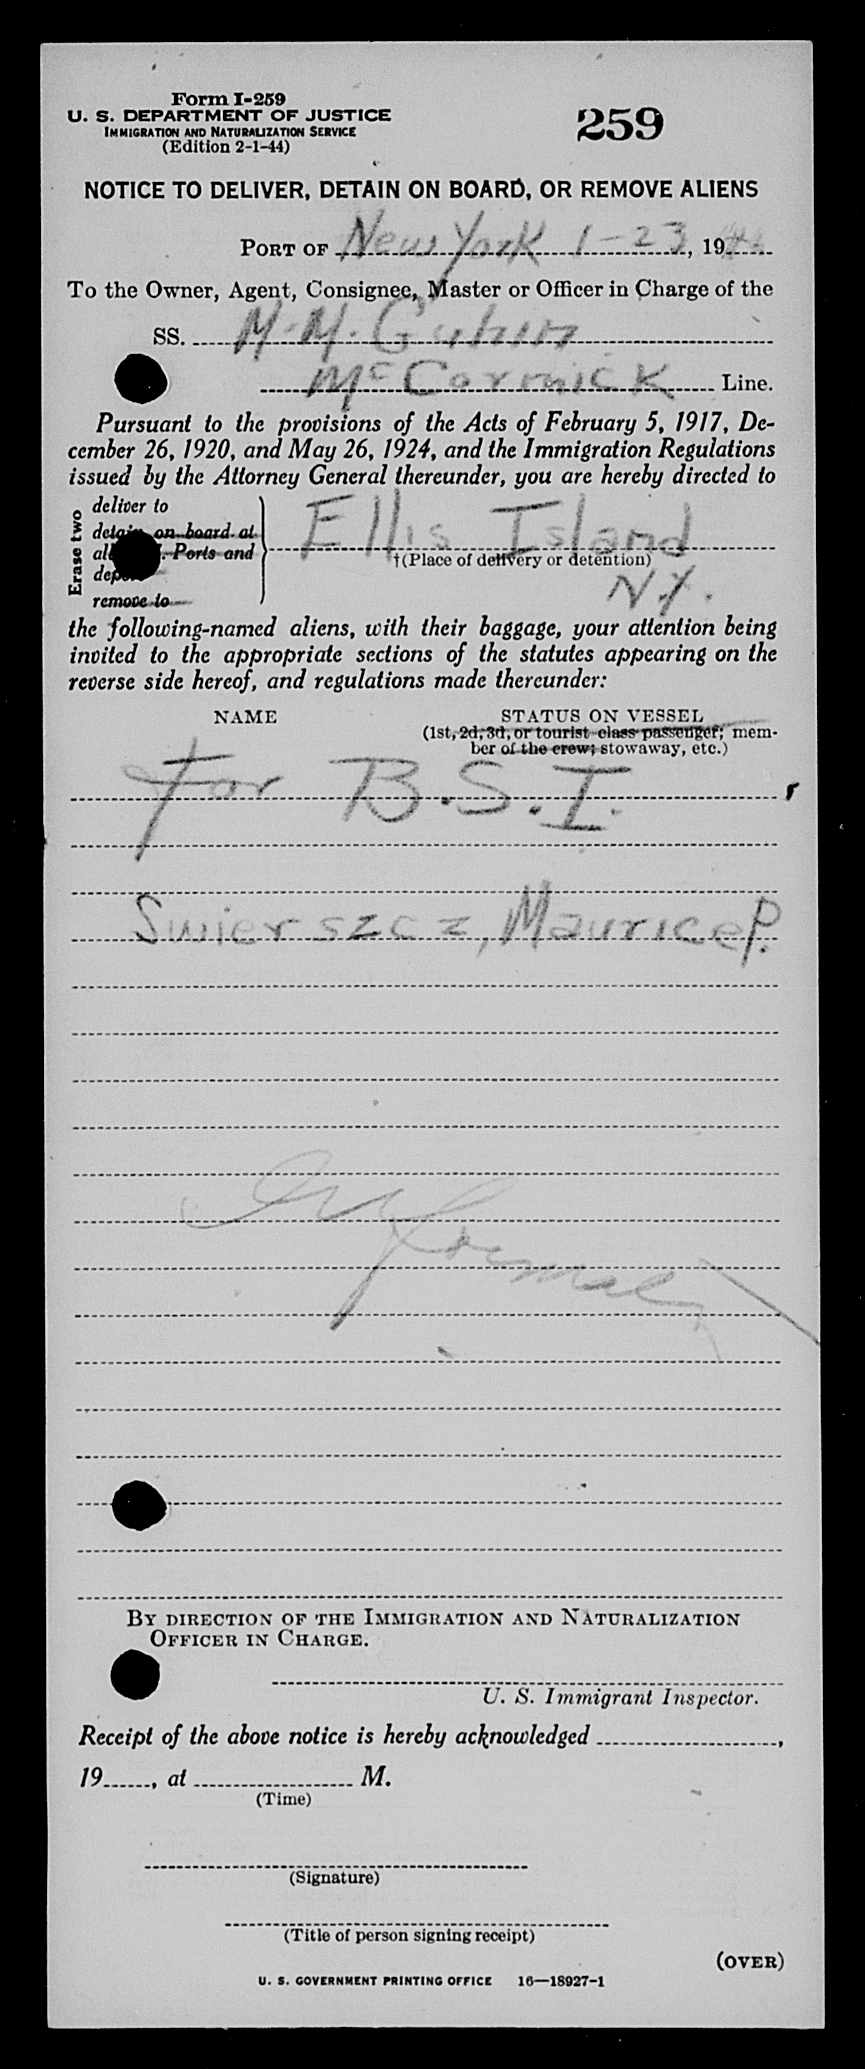 Form I-259
U. S. DEPARTMENT OF JUSTICE
IMMIGRATION AND NATURALIZATION SERVICE
(Edition 2-1-44)
259
NOTICE TO DELIVER, DETAIN ON BOARD, OR REMOVE ALIENS
PORT OF New York 1-23, 19
To the Owner, Agent, Consignee, Master or Officer in Charge of the
SS. M. M. Guhin
McCormick Line.
Pursuant to the provisions of the Acts of February 5, 1917, De-
cember 26, 1920, and May 26, 1924, and the Immigration Regulations
issued by the Attorney General thereunder, you are hereby directed to
Erase two
deliver to
detain on board at
all Ports and
remove to
Ellis Island
†(Place of delivery or detention)
N.Y.
the following-named aliens, with their baggage, your attention being
invited to the appropriate sections of the statutes appearing on the
reverse side hereof, and regulations made thereunder:
NAME STATUS ON VESSEL
(1st, 2d, 3d, or tourist class passenger; mem-
ber of the crew; stowaway, etc.)
For B.S.I.
Swierszcz, Maurice P.
BY DIRECTION OF THE IMMIGRATION AND NATURALIZATION
OFFICER IN CHARGE.
U. S. Immigrant Inspector.
Receipt of the above notice is hereby acknowledged ,
19 , at M.
(Time)
(Signature)
(Title of person signing receipt)
(OVER)
U. S. GOVERNMENT PRINTING OFFICE 16—18927-1